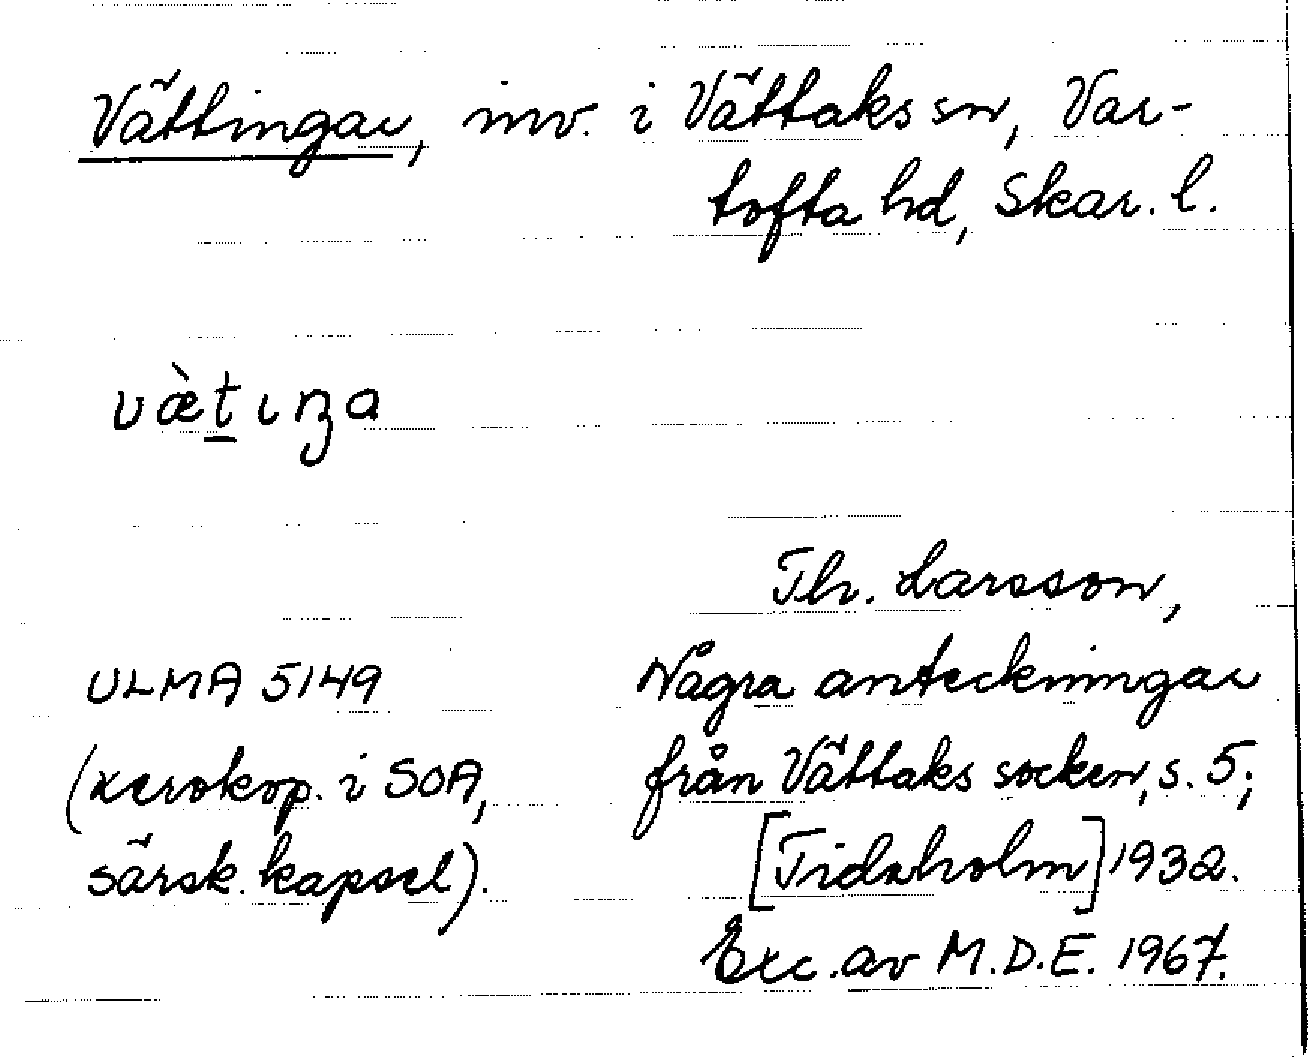 Vättingar, inv. i Vättaks sn, Var-
tofta hd, Skar. l.
væ̀t̲ıŋa
Th. Larsson,
Några anteckningar
från Vättaks socken, s. 5;
[Tidaholm] 1932.
Exc. av M.D.E. 1967.
ULMA 5149
(xerokop. i SOA,
särsk. kapsel).